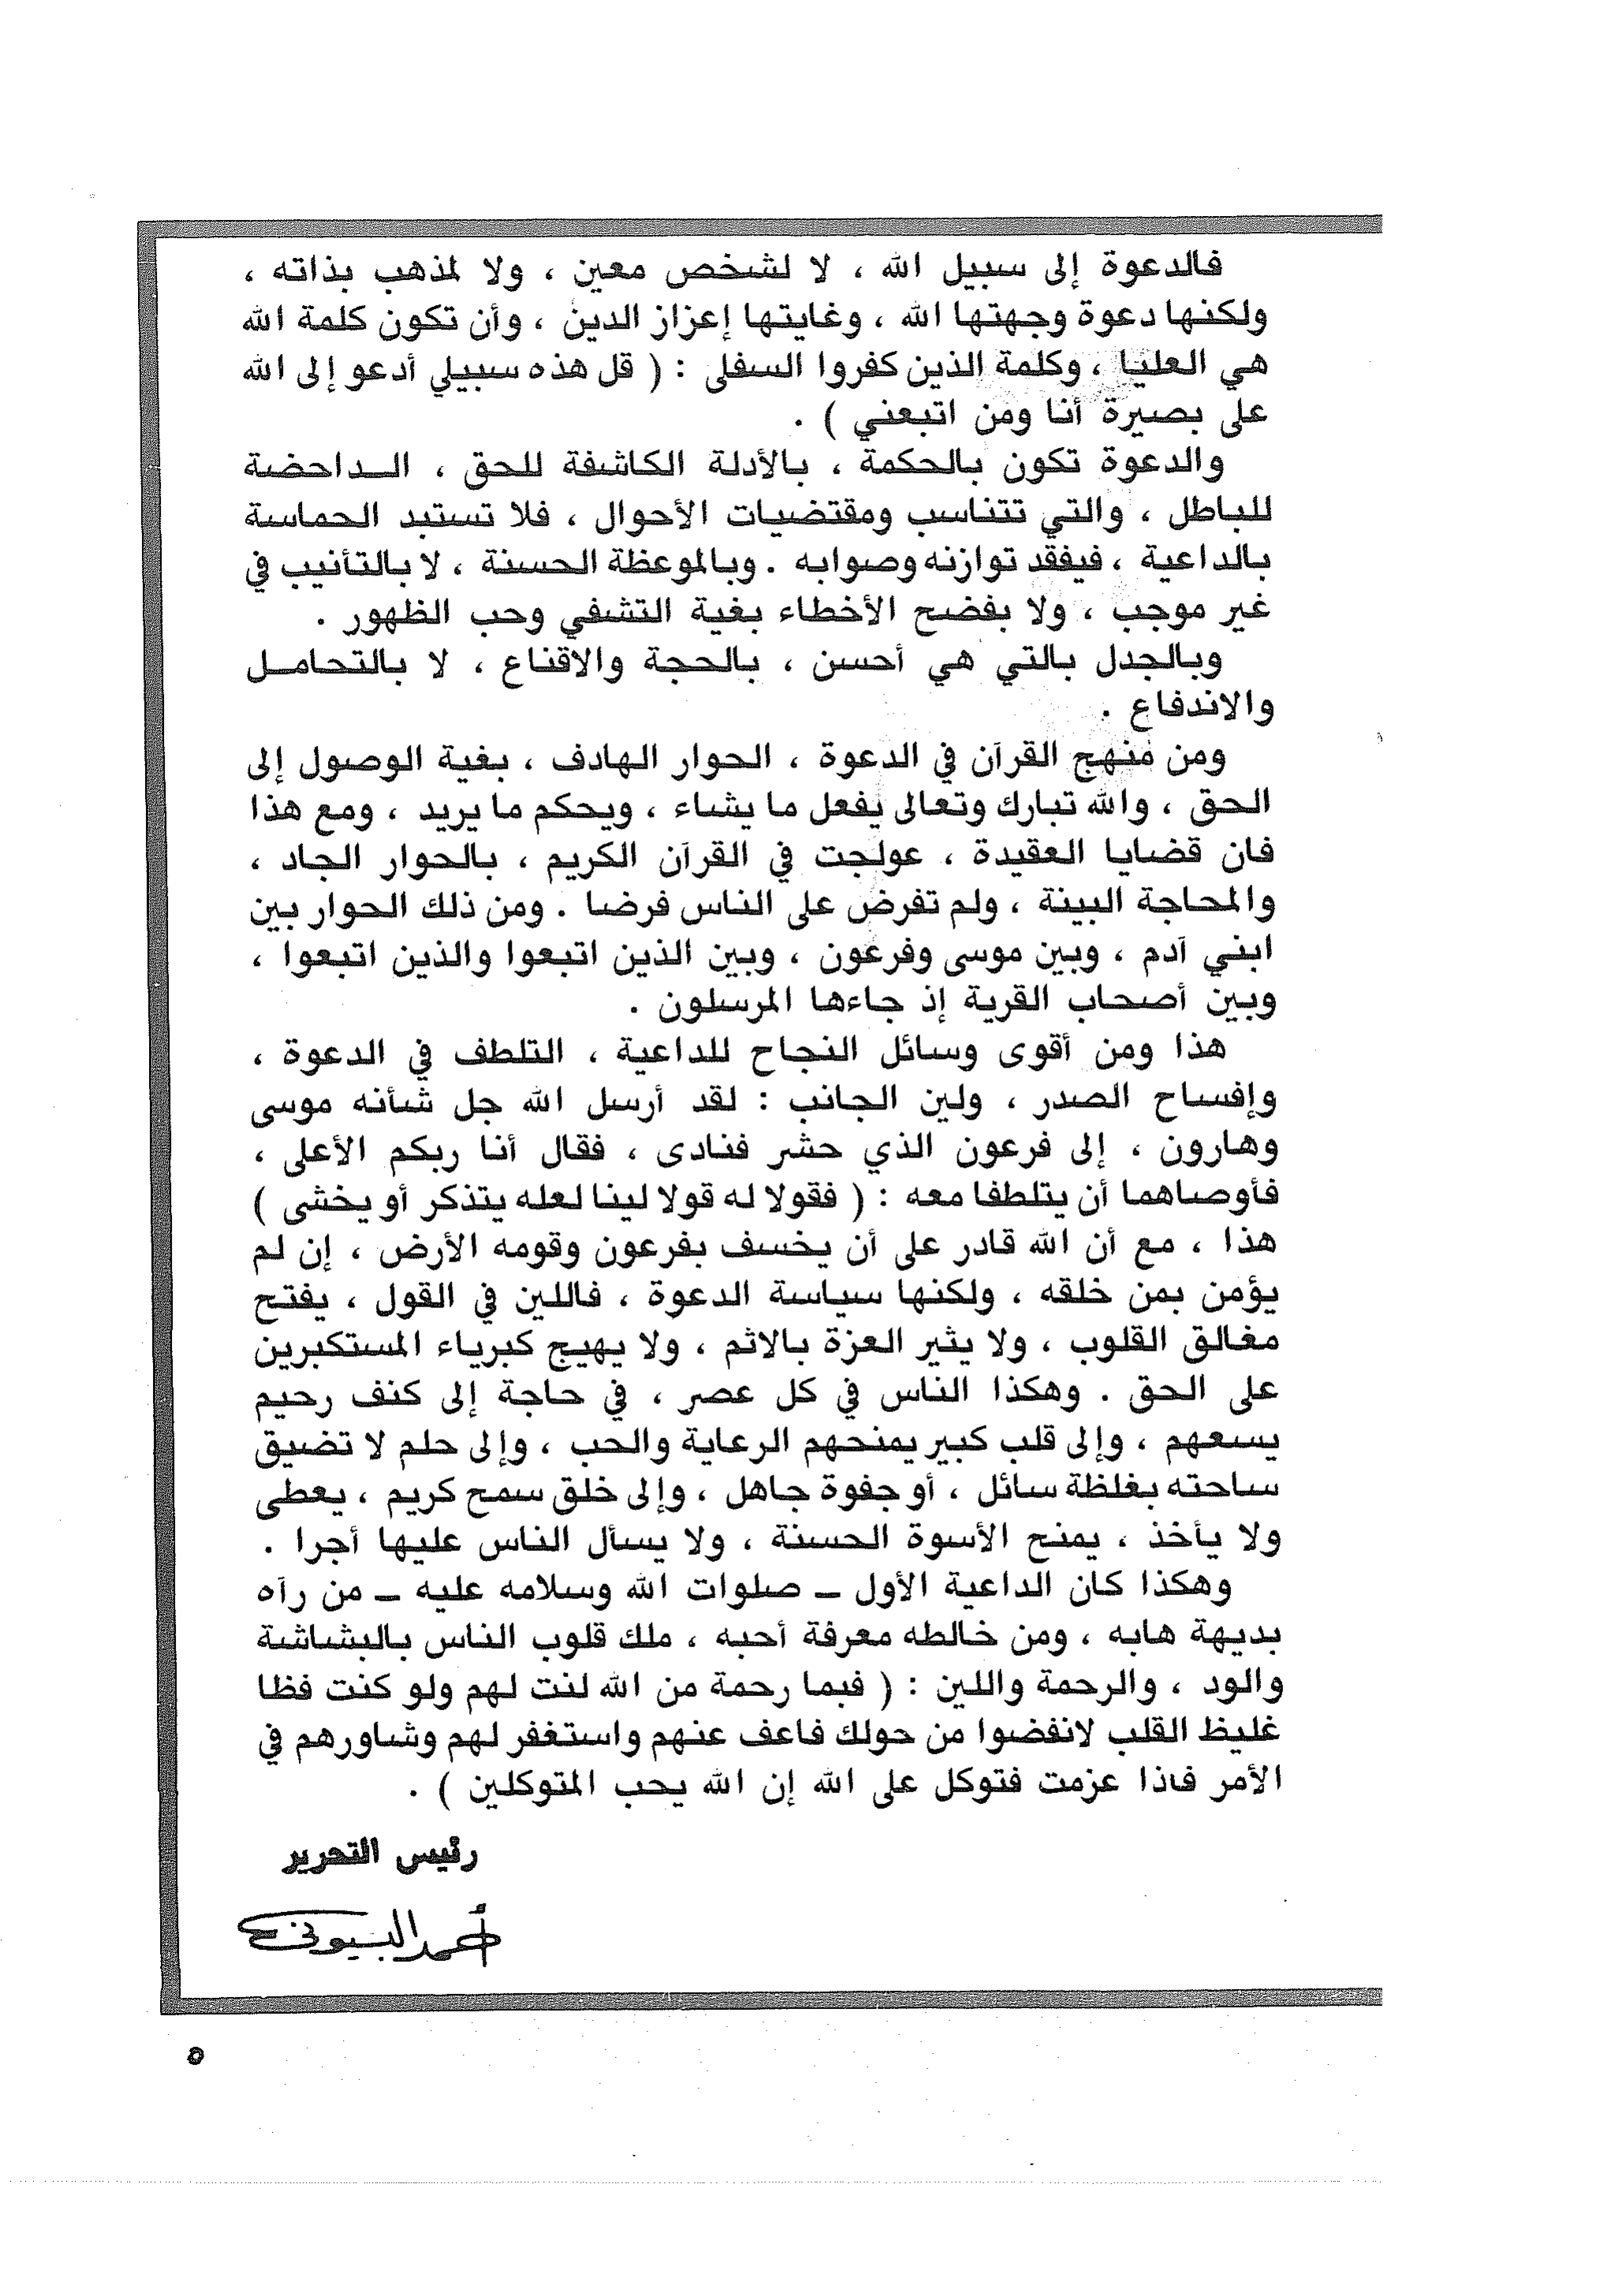 فالدعوة إلى سبيل الله ، لا لشخص معين ، ولا لمذهب بذاته ،
ولكنها دعوة وجهتها الله ، وغايتها إعزاز الدين ، وأن تكون كلمة الله
هي العليا ، وكلمة الذين كفروا السفلى : ( قل هذه سبيلي أدعو إلى الله
على بصيرة أنا ومن اتبعني ) .
والدعوة تكون بالحكمة ، بالأدلة الكاشفة للحق ، الـداحضة
للباطل ، والتي تتناسب ومقتضيات الأحوال ، فلا تستبد الحماسة
بالداعية ، فيفقد توازنه وصوابه . وبالموعظة الحسنة ، لا بالتأنيب في
غير موجب ، ولا بفضح الأخطاء بغية التشفي وحب الظهور .
وبالجدل بالتي هي أحسن ، بالحجة والاقناع ، لا بالتحامـل
والاندفاع .
ومن منهج القرآن في الدعوة ، الحوار الهادف ، بغية الوصول إلى
الحق ، والله تبارك وتعالى يفعل ما يشاء ، ويحكم ما يريد ، ومع هذا
فان قضايا العقيدة ، عولجت في القرآن الكريم ، بالحوار الجاد ،
والمحاجة البينة ، ولم تفرض على الناس فرضا . ومن ذلك الحوار بين
ابني آدم ، وبين موسى وفرعون ، وبين الذين اتبعوا والذين اتبعوا ،
وبين أصحاب القرية إذ جاءها المرسلون .
هذا ومن أقوى وسائل النجاح للداعية ، التلطف في الدعوة ،
وإفساح الصدر ، ولين الجانب : لقد أرسل الله جل شأنه موسى
وهارون ، إلى فرعون الذي حشر فنادى ، فقال أنا ربكم الأعلى ،
فأوصاهما أن يتلطفا معه : ( فقولا له قولا لينا لعله يتذكر أو يخشى )
هذا ، مع أن الله قادر على أن يخسف بفرعون وقومه الأرض ، إن لم
يؤمن بمن خلقه ، ولكنها سياسة الدعوة ، فاللين في القول ، يفتح
مغالق القلوب ، ولا يثير العزة بالاثم ، ولا يهيج كبرياء المستكبرين
على الحق . وهكذا الناس في كل عصر ، في حاجة إلى كنف رحيم
يسعهم ، وإلى قلب كبير يمنحهم الرعاية والحب ، وإلى حلم لا تضيق
ساحته بغلظة سائل ، أو جفوة جاهل ، وإلى خلق سمح كريم ، يعطى
ولا يأخذ ، يمنح الأسوة الحسنة ، ولا يسأل الناس عليها أجرا .
وهكذا كان الداعية الأول ــ صلوات الله وسلامه عليه ــ من رآه
بديهة هابه ، ومن خالطه معرفة أحبه ، ملك قلوب الناس بالبشاشة
والود ، والرحمة واللين : ( فبما رحمة من الله لنت لهم ولو كنت فظا
غليظ القلب لانفضوا من حولك فاعف عنهم واستغفر لهم وشاورهم في
الأمر فاذا عزمت فتوكل على الله إن الله يحب المتوكلين ) .
رئيس التحرير
أحمد البسيوني
٥